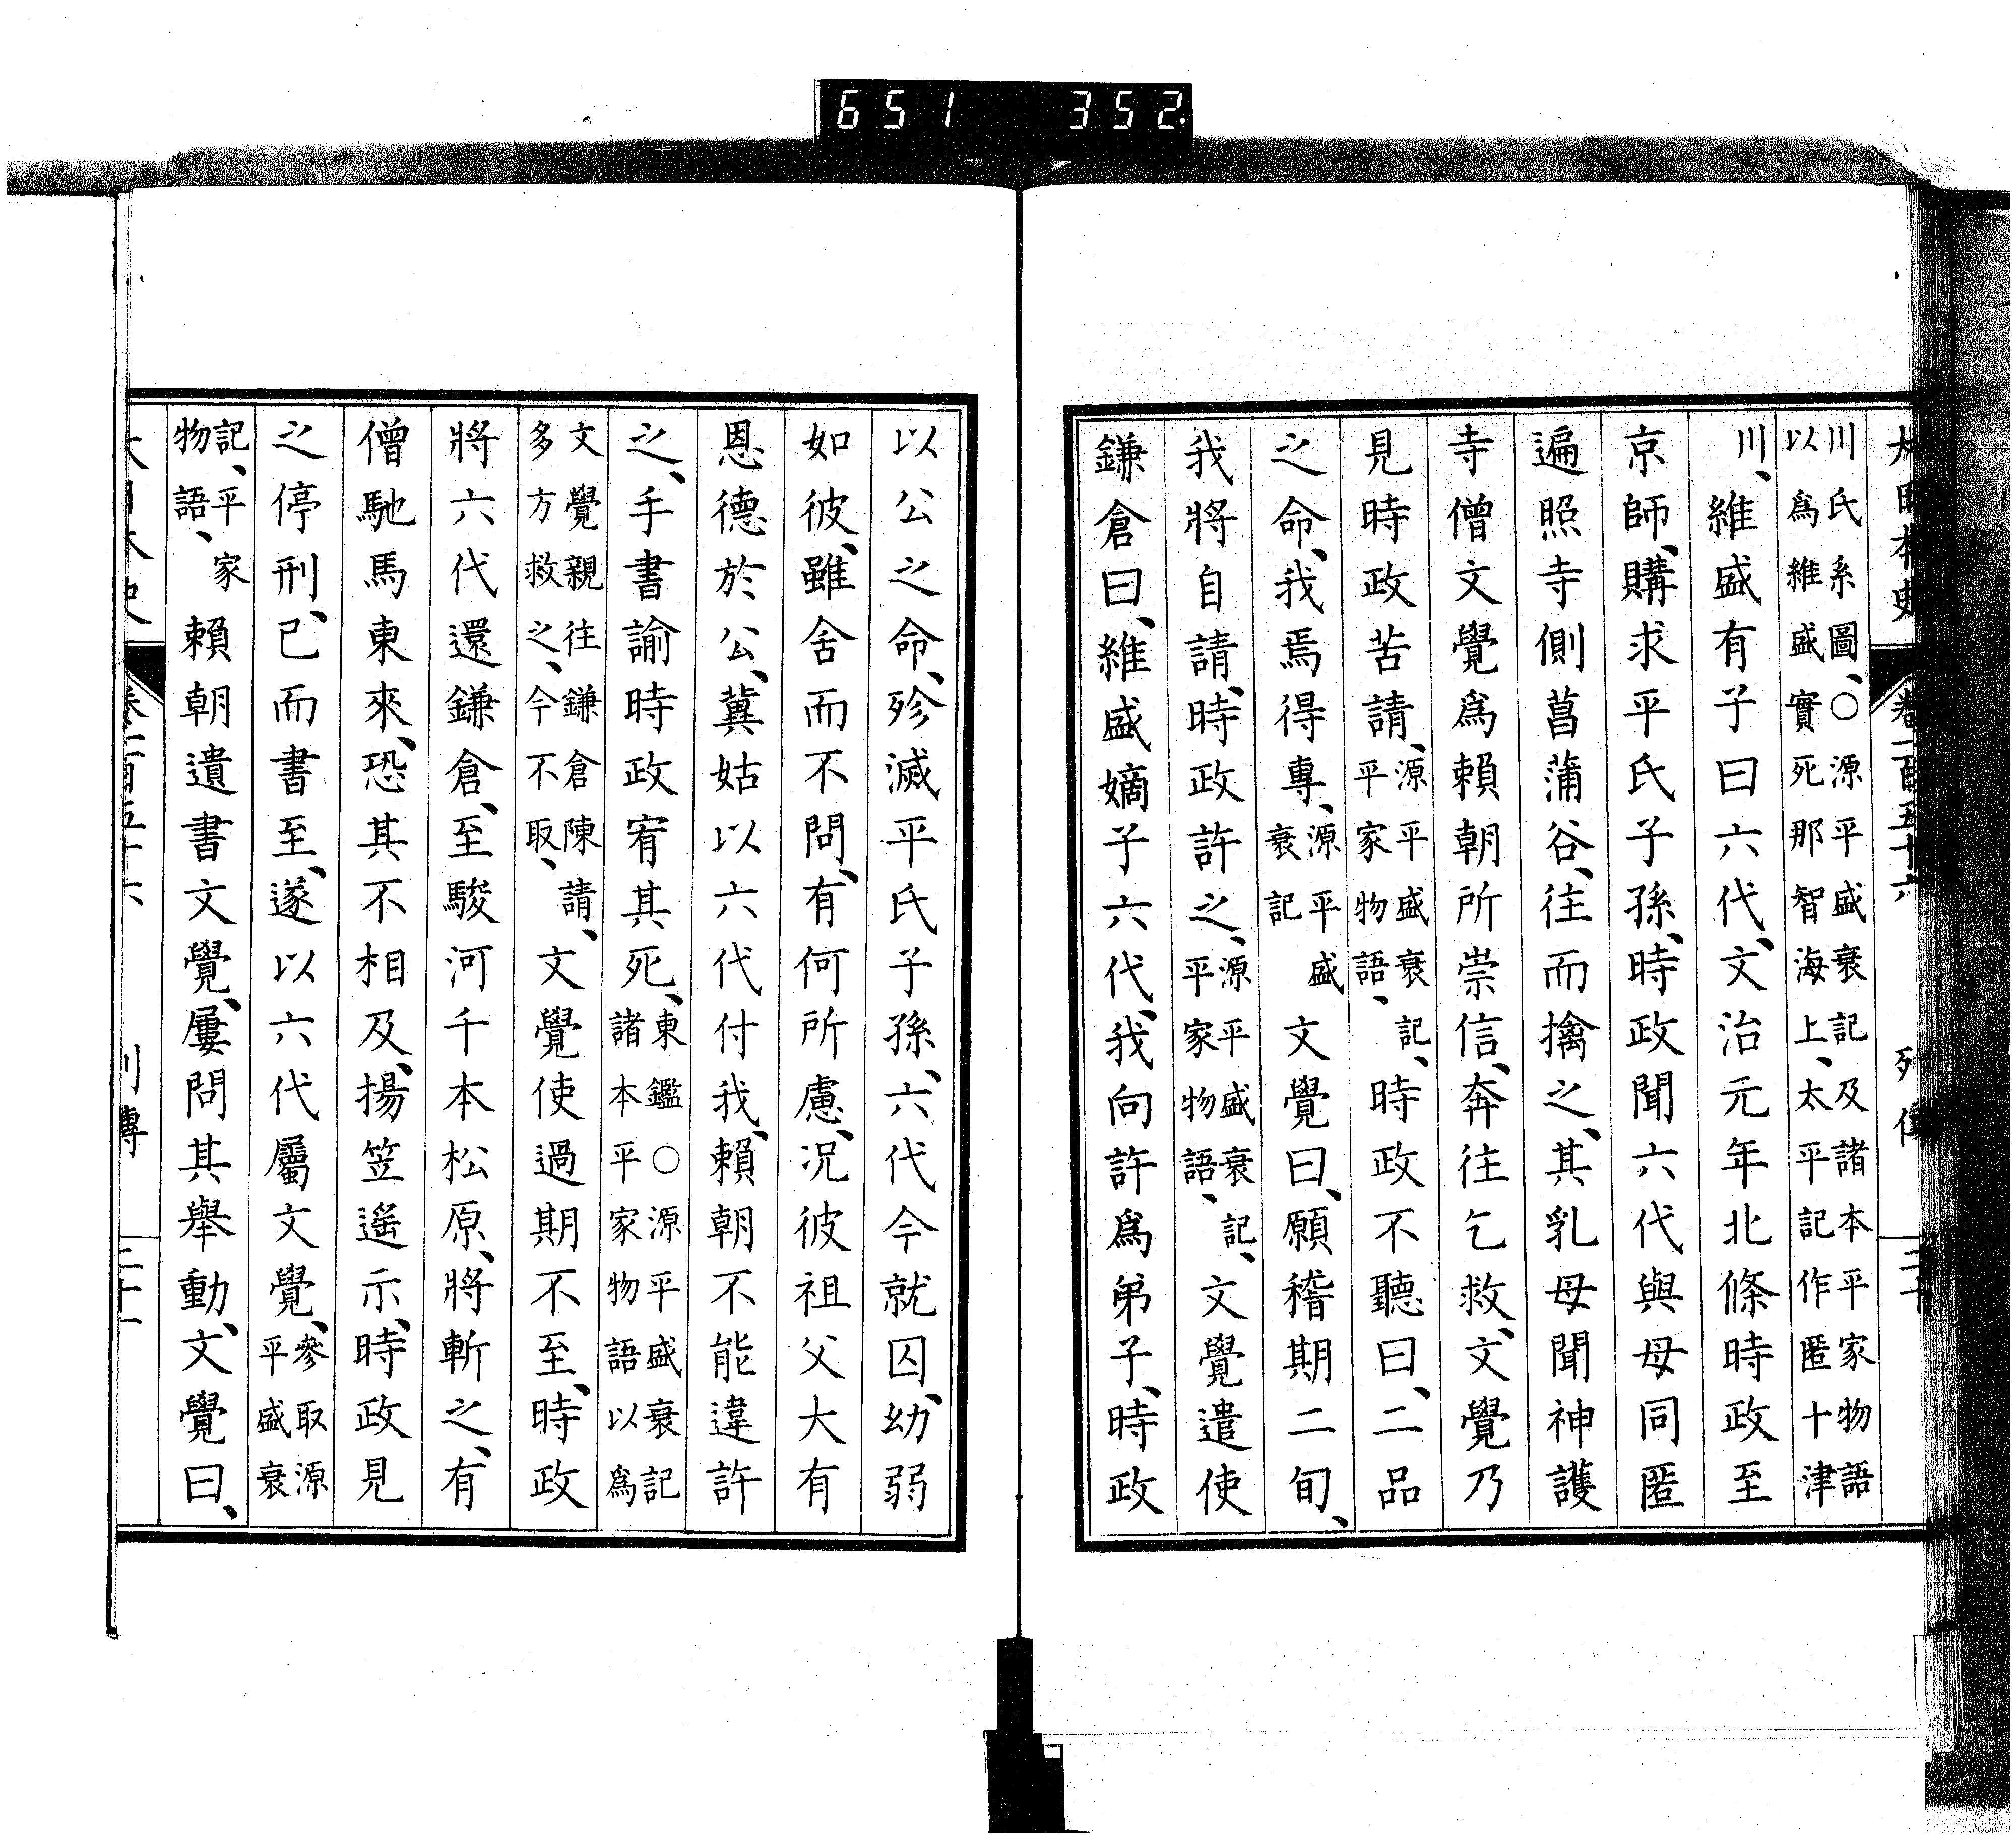 651 352.
大日本史 卷一百五十六 列傳 二十
川氏系圖、○源平盛衰記及諸本平家物語
以爲維盛實死那智海上、太平記作匿十津
川、維盛有子曰六代、文治元年北條時政至
京師、購求平氏子孫、時政聞六代與母同匿
遍照寺側菖蒲谷、往而擒之、其乳母聞神護
寺僧文覺爲賴朝所崇信、奔往乞救、文覺乃
見時政苦請、源平盛衰記、平家物語、時政不聽曰、二品
之命、我焉得專、源平盛衰記文覺曰、願稽期二旬、
我將自請、時政許之、源平盛衰記、平家物語、文覺遣使
鎌倉曰、維盛嫡子六代、我向許爲弟子、時政
以公之命、殄滅平氏子孫、六代今就囚、幼弱
如彼、雖舍而不問、有何所慮、况彼祖父大有
恩德於公、冀姑以六代付我、賴朝不能違許
之、手書諭時政宥其死、東鑑○源平盛衰記諸本平家物語以爲
文覺親往鎌倉陳請、多方救之、今不取、文覺使過期不至、時政
將六代還鎌倉、至駿河千本松原、將斬之、有
僧馳馬東來、恐其不相及、揚笠遙示、時政見
之停刑、已而書至、遂以六代屬文覺、參取源平盛衰
記、平家物語、賴朝遺書文覺、屢問其舉動、文覺曰、
大日本史 卷一百五十六 列傳 二十一